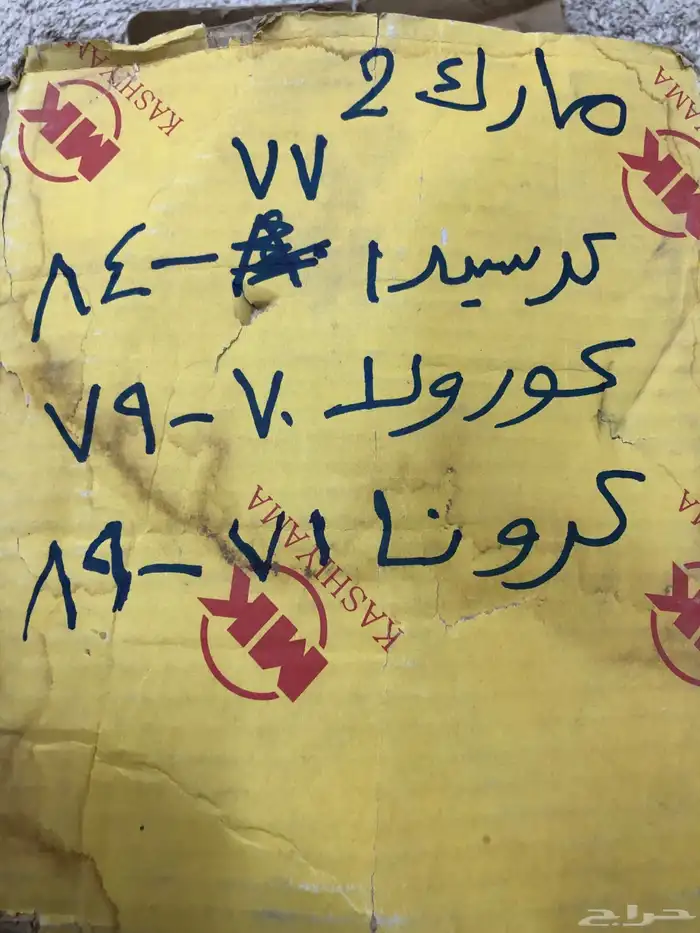 مارك 2
٧٧
كرسيدا - ٨٤
كورولا ٧٠ - ٧٩
كرونا ٧١ - ٨٩
MK KASHIYAMA
MK
MK KASHIYAMA
MK
حراج